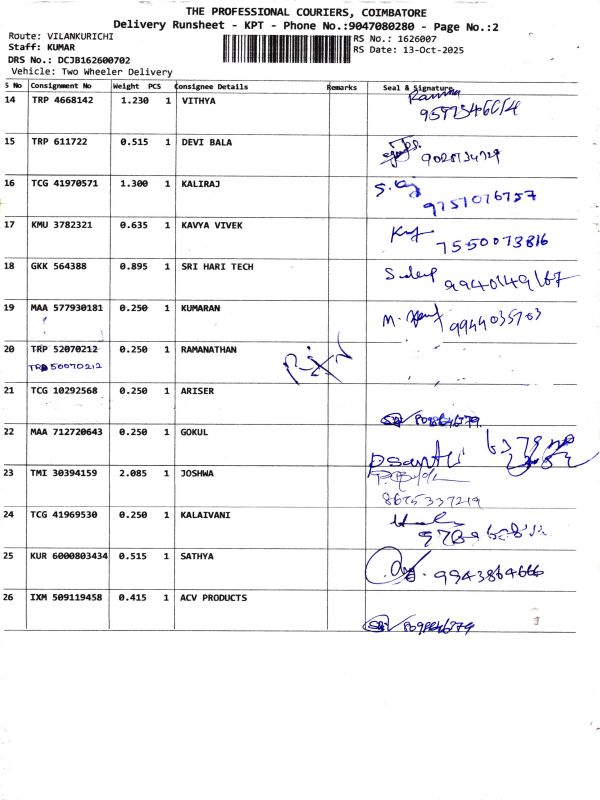 THE PROFESSIONAL COURIERS, COIMBATORE
Delivery Runsheet - KPT - Phone No.:9047080280 - Page No.:2
Route: VILANKURICHI
RS No.: 1626007
Staff: KUMAR
RS Date: 13-Oct-2025
DRS No.: DCJB162600702
Vehicle: Two Wheeler Delivery
S No Consignment No Weight PCS Consignee Details Remarks Seal & Signature
14 TRP 4668142 1.230 1 VITHYA
15 TRP 611722 0.515 1 DEVI BALA
16 TCG 41970571 1.300 1 KALIRAJ
9751076757
17 KMU 3782321 0.635 1 KAVYA VIVEK
7550073816
18 GKK 564388 0.895 1 SRI HARI TECH
9940149167
19 MAA 577930181 0.250 1 KUMARAN
9944035703
20 TRP 52070212 0.250 1 RAMANATHAN
TRP 50070212
21 TCG 10292568 0.250 1 ARISER
22 MAA 712720643 0.250 1 GOKUL
23 TMI 30394159 2.085 1 JOSHWA
8675337219
24 TCG 41969530 0.250 1 KALAIVANI
25 KUR 6000803434 0.515 1 SATHYA
9943864666
26 IXM 509119458 0.415 1 ACV PRODUCTS